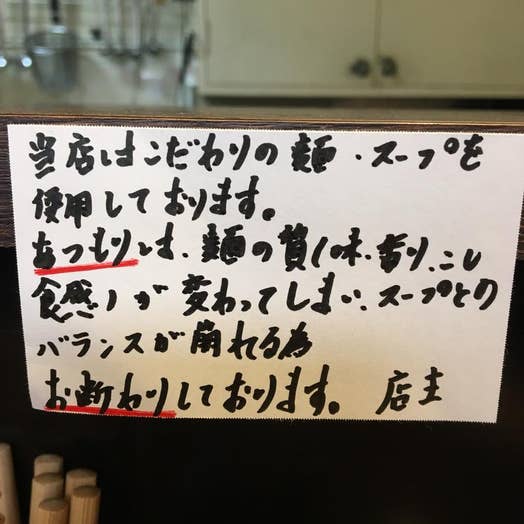 当店はこだわりの麺・スープを
使用しております。
あつもりは、麺の質(味・香り、こし
食感)が変わってしまい、スープとの
バランスが崩れる為
お断わりしております。 店主